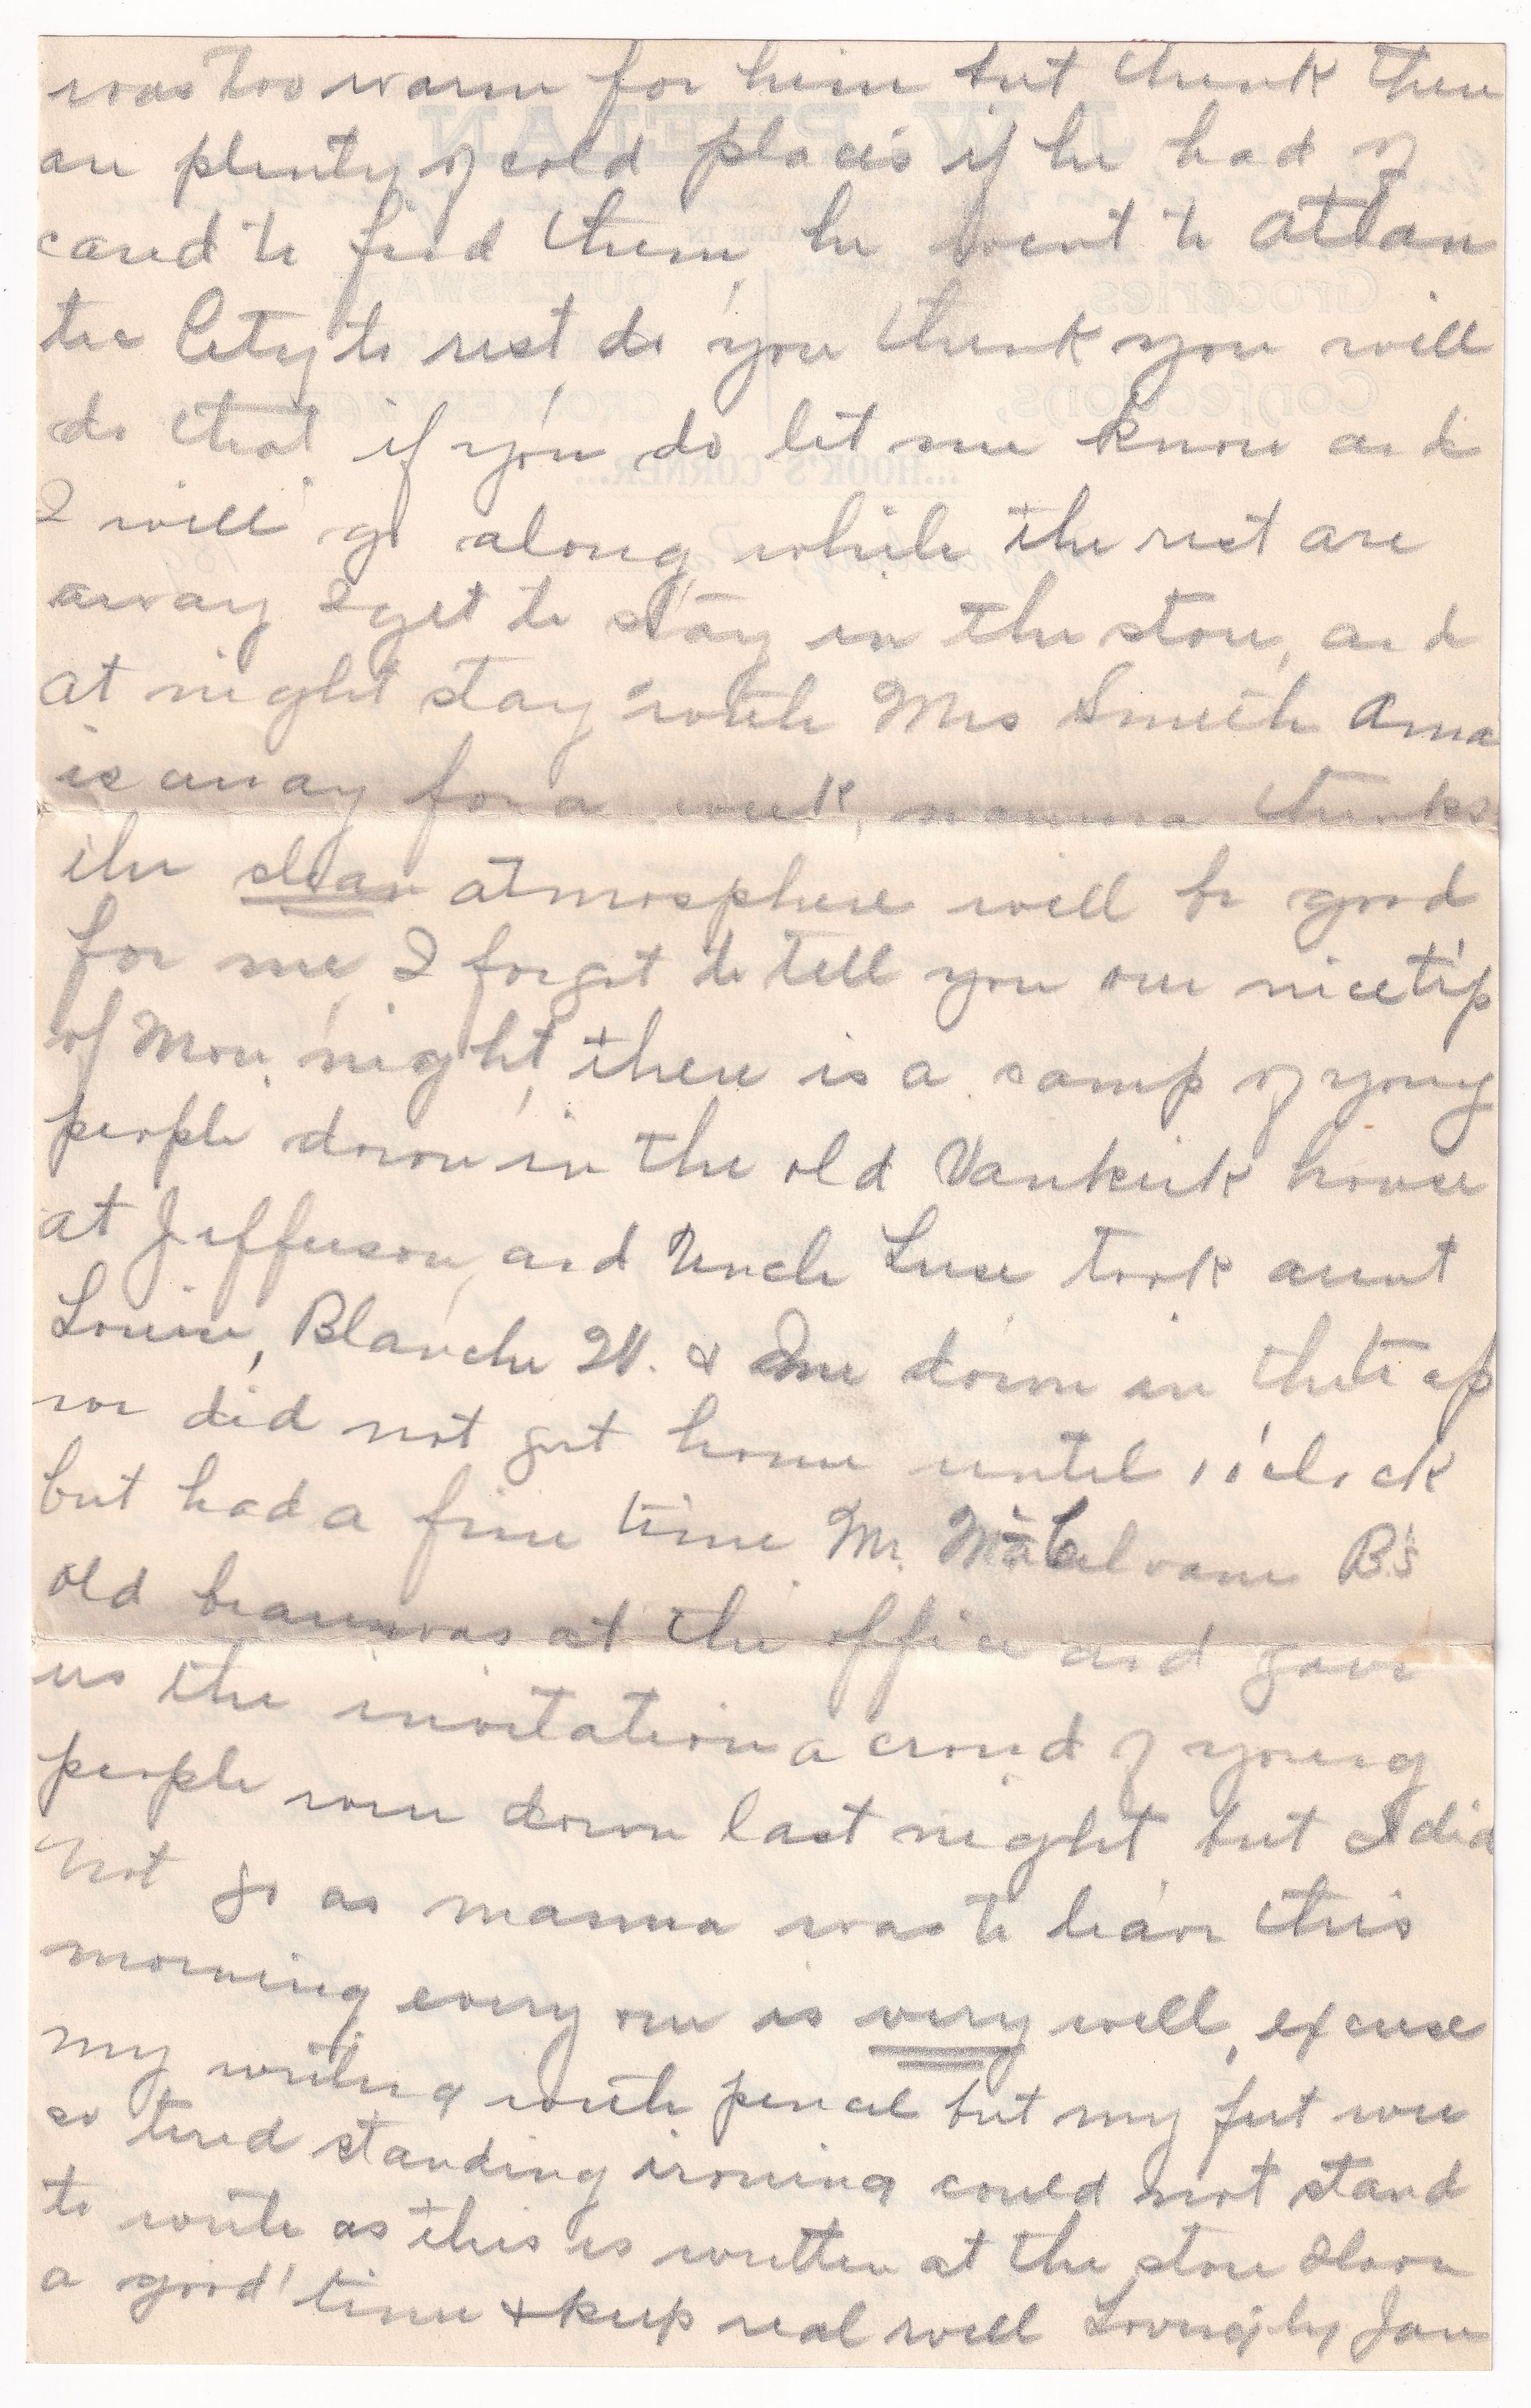 was too warm for him but think there
are plenty of cold places if he had of
cared to find them, he went to Atlan
tic City to rest, do you think you will
do that if you do let me know and
I will go along while the rest are
away I get to stay in the store, and
at night stay with Mrs Smith Anna
is away for a week, mamma thinks
the clean atmosphere will be good
for me, I forgot to tell you our nice trip
of Mon. night, there is a camp of young
people down in the old Vankirk house
at Jefferson, and Uncle Luse took aunt
Louise, Blanche W. & me down in the trap
we did not get home until 1 o'clock
but had a fine time Mr. B's
old beau was at the office and gave
us the invitation a crowd of young
people were down last night but I did
not go as mamma was to leave this
morning every one is very well, excuse
my writing with pencil but my feet were
so tired standing ironing could not stand
to write as this is written at the store Have
a good time & keep real well Lovingly Jan